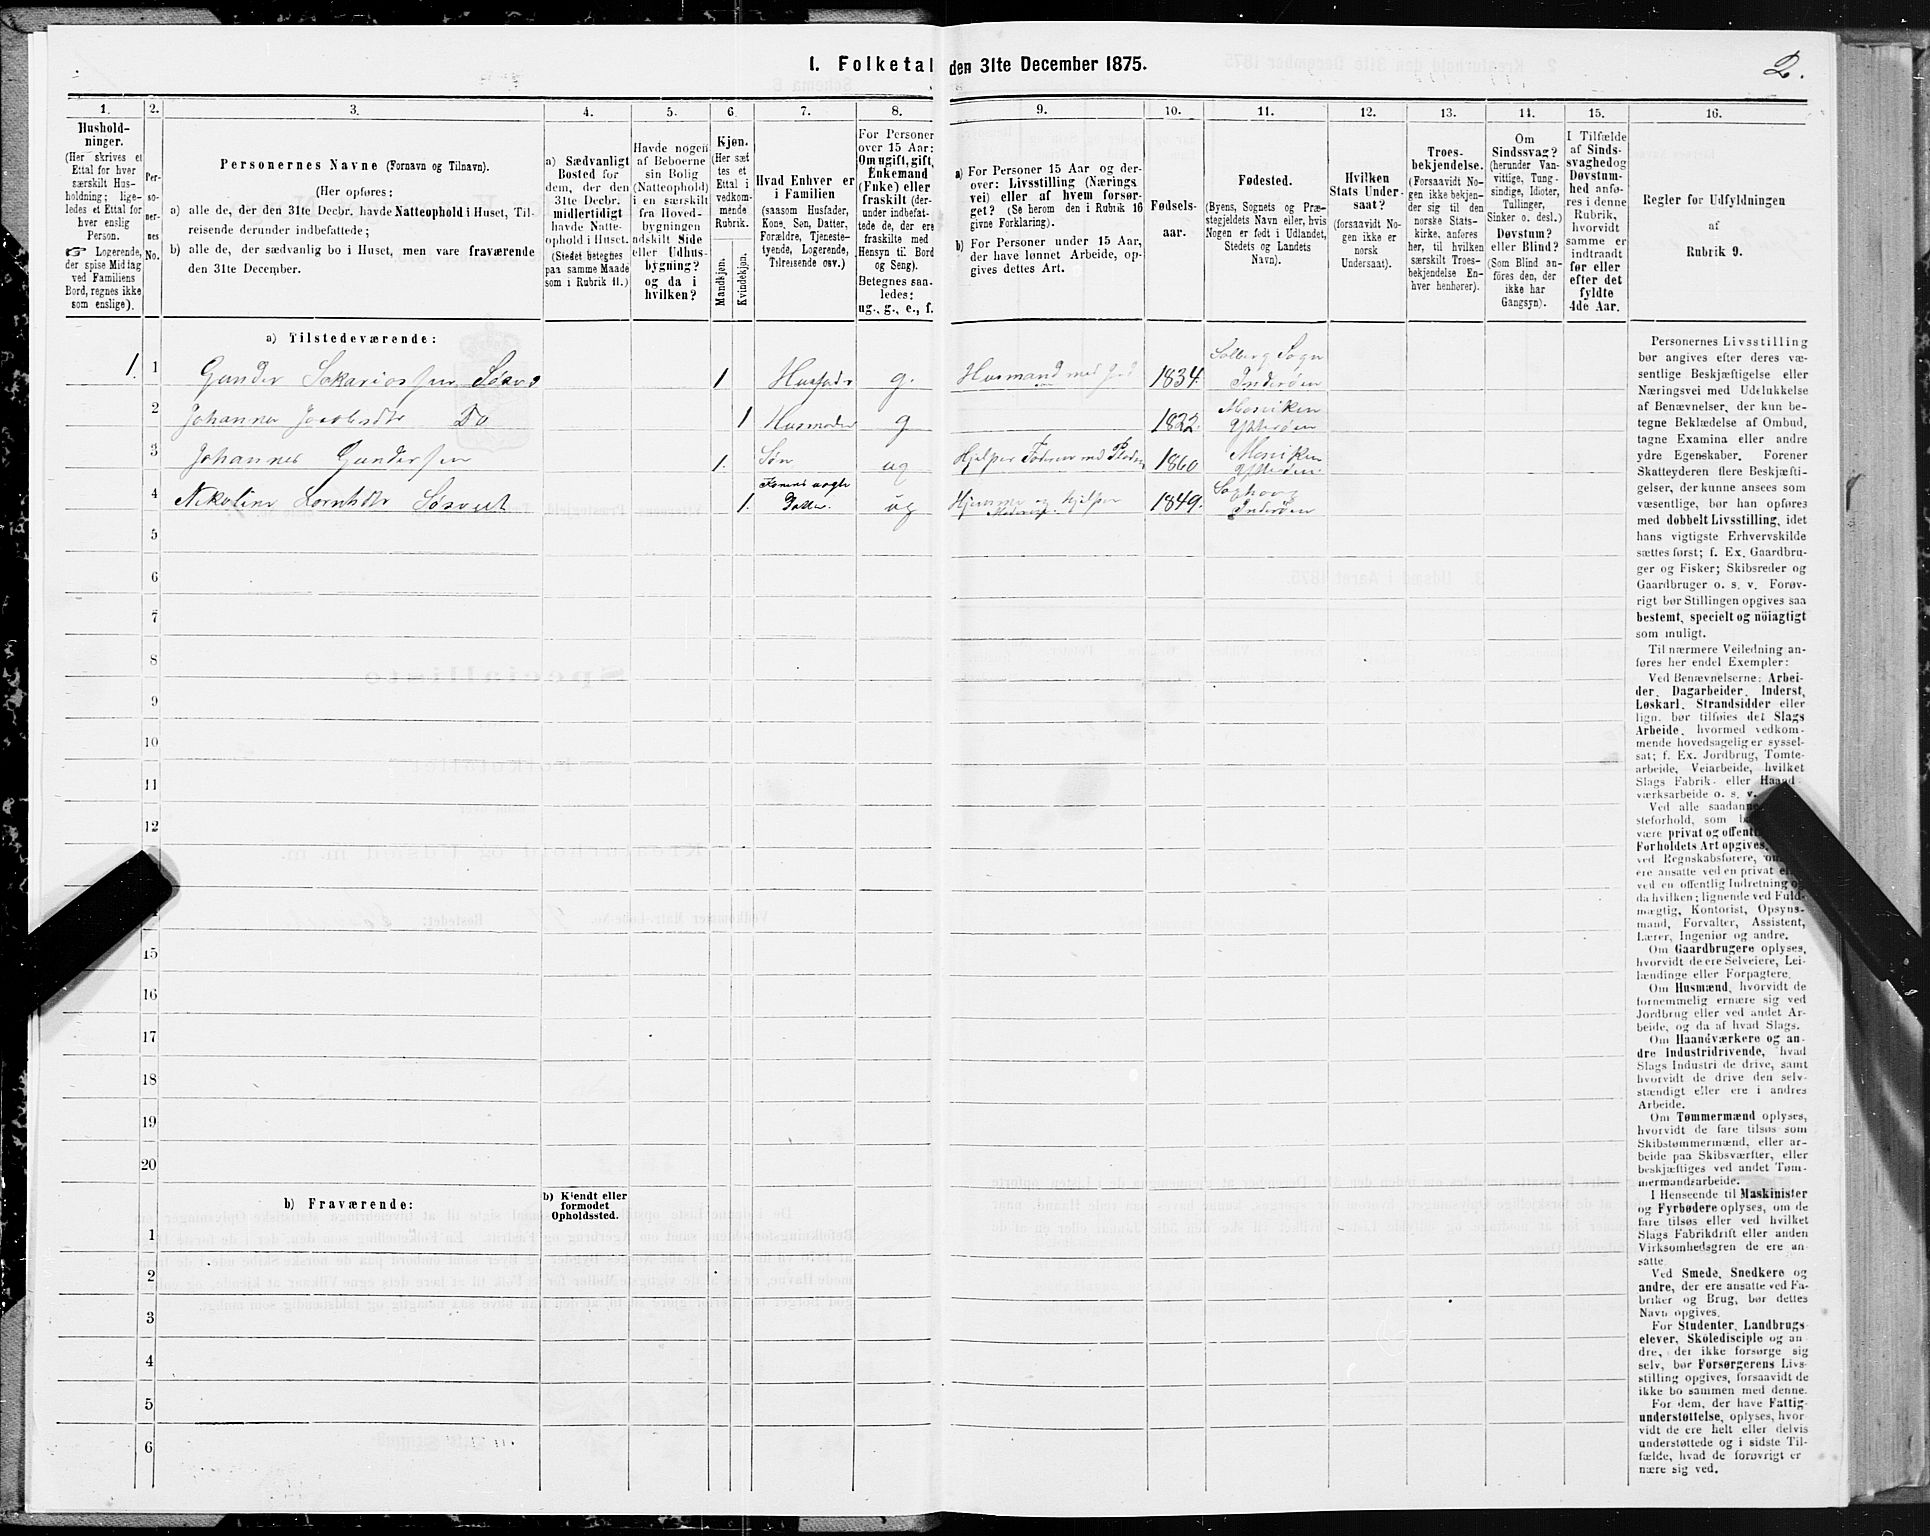 1. Folketal den 31te December 1875.
2.
1.
Hushold-
ninger.
(Her skrives et
Ettal for hver
særskilt Hus-
holdning; lige-
ledes et Ettal for
hver enslig
Person.
☞ Logerende,
der spise Middag
ved Familiens
Bord, regnes ikke
som enslige).
2.
Per-
so-
ner-
nes
No.
3.
Personernes Navne (Fornavn og Tilnavn).
(Her opføres:
a) alle de, der den 31te Decbr. havde Natteophold i Huset, Til-
reisende derunder indbefattede;
b) alle de, der sædvanlig bo i Huset, men vare fraværende
den 31te December.
4.
a) Sædvanligt
Bosted for
dem, der den
31te Decbr.
midlertidigt
havde Natte-
ophold i Huset.
(Stedet betegnes
paa samme Maade
som i Rubrik 11.)
5.
Havde nogen
af Beboerne
sin Bolig
(Natteophold)
i en særskilt
fra Hoved-
bygningen
adskilt Side
eller Udhus-
bygning?
og da i
hvilken?
6.
Kjøn.
(Her sæt
tes et
Ettal i
vedkom-
mende
Rubrik.
Mandkjøn.
Kvindekjøn.
7.
Hvad Enhver er
i Familien
(saasom Husfader,
Kone, Søn, Datter,
Forældre, Tjeneste-
tyende, Logerende,
Tilreisende osv.)
8.
For Personer
over 15 Aar:
Om ugift, gift,
Enkemand
(Enke) eller
fraskilt (der-
under indbefat-
tede de, der ere
fraskilte med
Hensyn til Bord
og Seng).
Betegnes saa-
ledes:
ug., g., e., f.
9.
a) For Personer 15 Aar og der-
over: Livsstilling (Nærings
vei) eller af hvem forsør-
get? (Se herom den i Rubrik 16
givne Forklaring).
b) For Personer under 15 Aar,
der have lønnet Arbeide, op-
gives dettes Art.
10.
Fødsels-
aar.
11.
Fødested.
(Byens, Sognets og Præ-
stegjeldets Navn eller, hvis
Nogen er født i Udlandet,
Stedets og Landets
Navn).
12.
Hvilken
Stats Under-
saat?
(forsaavidt No-
gen ikke er
norsk
Undersaat).
13.
Troes-
bekjendelse.
(Forsaavidt No-
gen ikke bekjen-
der sig til den
norske Stats-
kirke, anføres
her, til hvilken
særskilt Troes-
bekjendelse En-
hver henhører).
14.
Om
Sindssvag?
(herunder Van-
vittige, Tung-
sindige, Idioter,
Tullinger,
Sinker o. desl.)
Døvstum?
eller Blind?
(Som Blind an-
føres den, der
ikke har
Gangsyn).
15.
I Tilfælde
af Sinds-
svaghed og
Døvstum-
hed anfø-
res i denne
Rubrik,
hvorvidt
samme er
indtraadt
før eller
efter det
fyldte
4de Aar.
16.
Regler for Udfyldningen
af
Rubrik 9.
a) Tilstedeværende:
1. 1 Gunder Sakariassen 1 Husfader g. Husmand med Jord 1834. Solberg Sogn Inderøen
2 Johanna Jacobsdtr Do 1 Husmoder g 1822. Mosviken Ytterøen
3 Johannes Gundersen 1. Søn ug Hjelper Faderen med 1860 Mosviken Ytterøen
4 Nikoline 1. Konens Datter ug og hjelper 1849. Inderøen
5
6
7
8
9
10
11
12
15
16
17
18
19
20
b) Fraværende:
b) Kjendt eller
formodet
Opholdssted.
1
2
3
4
5
6
Personernes Livsstilling
bør angives efter deres væ-
sentlige Beskjæftigelse eller
Næringsvei med Udelukkelse
af Benævnelser, der kun be-
tegne Beklædelse af Ombud,
tagne Examina eller andre
ydre Egenskaber. Forener
Skatteyderen flere Beskjæfti-
gelser, der kunne ansees som
væsentlige, bør han opføres
med dobbelt Livsstilling, idet
hans vigtigste Erhvervskilde
sættes først; f. Ex. Gaardbru-
ger og Fisker; Skibsreder og
Gaardbruger o. s. v. Forøv-
rigt bør Stillingen opgives saa
bestemt, specielt og nøiagtigt
som muligt.
Til nærmere Veiledning an-
føres her endel Exempler:
Ved Benævnelserne: Arbei-
der, Dagarbeider, Inderst,
Løskarl, Strandsidder eller
lign. bør tilføies det Slags
Arbeide, hvormed vedkom-
mende hovedsagelig er syssel-
sat; f. Ex. Jordbrug, Tomte-
arbeide, Veiarbeide, hvilket
Slags Fabrik- eller Haand-
værksarbeide o. s. v.
Ved alle saadanne
steforhold, som
være privat og offentl
Forholdets Art opgives,
ved Regnskabsførere,
ere ansatte ved en privat
ved en offentlig Indretning og
da hvilken; lignende ved Fuld-
mægtig, Kontorist, Opsyns-
mand, Forvalter, Assistent,
Lærer, Ingeniør og andre.
Om Gaardbrugere oplyses,
hvorvidt de ere Selveiere, Lei-
lændinge eller Forpagtere.
Om Husmænd, hvorvidt de
fornemmelig ernære sig ved
Jordbrug eller ved andet Ar-
beide, og da af hvad Slags.
Om Haandværkere og an-
dre Industridrivende, hvad
Slags Industri de drive, samt
hvorvidt de drive den selv-
stændigt eller ere i andres
Arbeide.
Om Tømmermænd oplyses,
hvorvidt de fare tilsøs som
Skibstømmermænd, eller ar-
beide paa Skibsværfter, eller
beskjæftiges ved andet Tøm-
mermandsarbeide.
I Henseende til Maskinister
og Fyrbødere oplyses, om de
fare tilsøs eller ved hvilket
Slags Fabrikdrift eller anden
Virksomhedsgren de ere an-
satte.
Ved Smede, Snedkere og
andre, der ere ansatte ved Fa-
briker og Brug, bør dettes
Navn opgives.
For Studenter, Landbrugs-
elever, Skoledisciple og an
dre, der ikke forsørge sig
selv, bør Forsørgerens Livs-
stilling opgives, forsaavidt de
ikke bo sammen med denne.
For dem, der have Fattig-
understøttelse, oplyses, hvor
vidt de ere helt eller delvis
understøttede og i sidste Til-
fælde, hvad de forøvrigt er
nære sig ved.